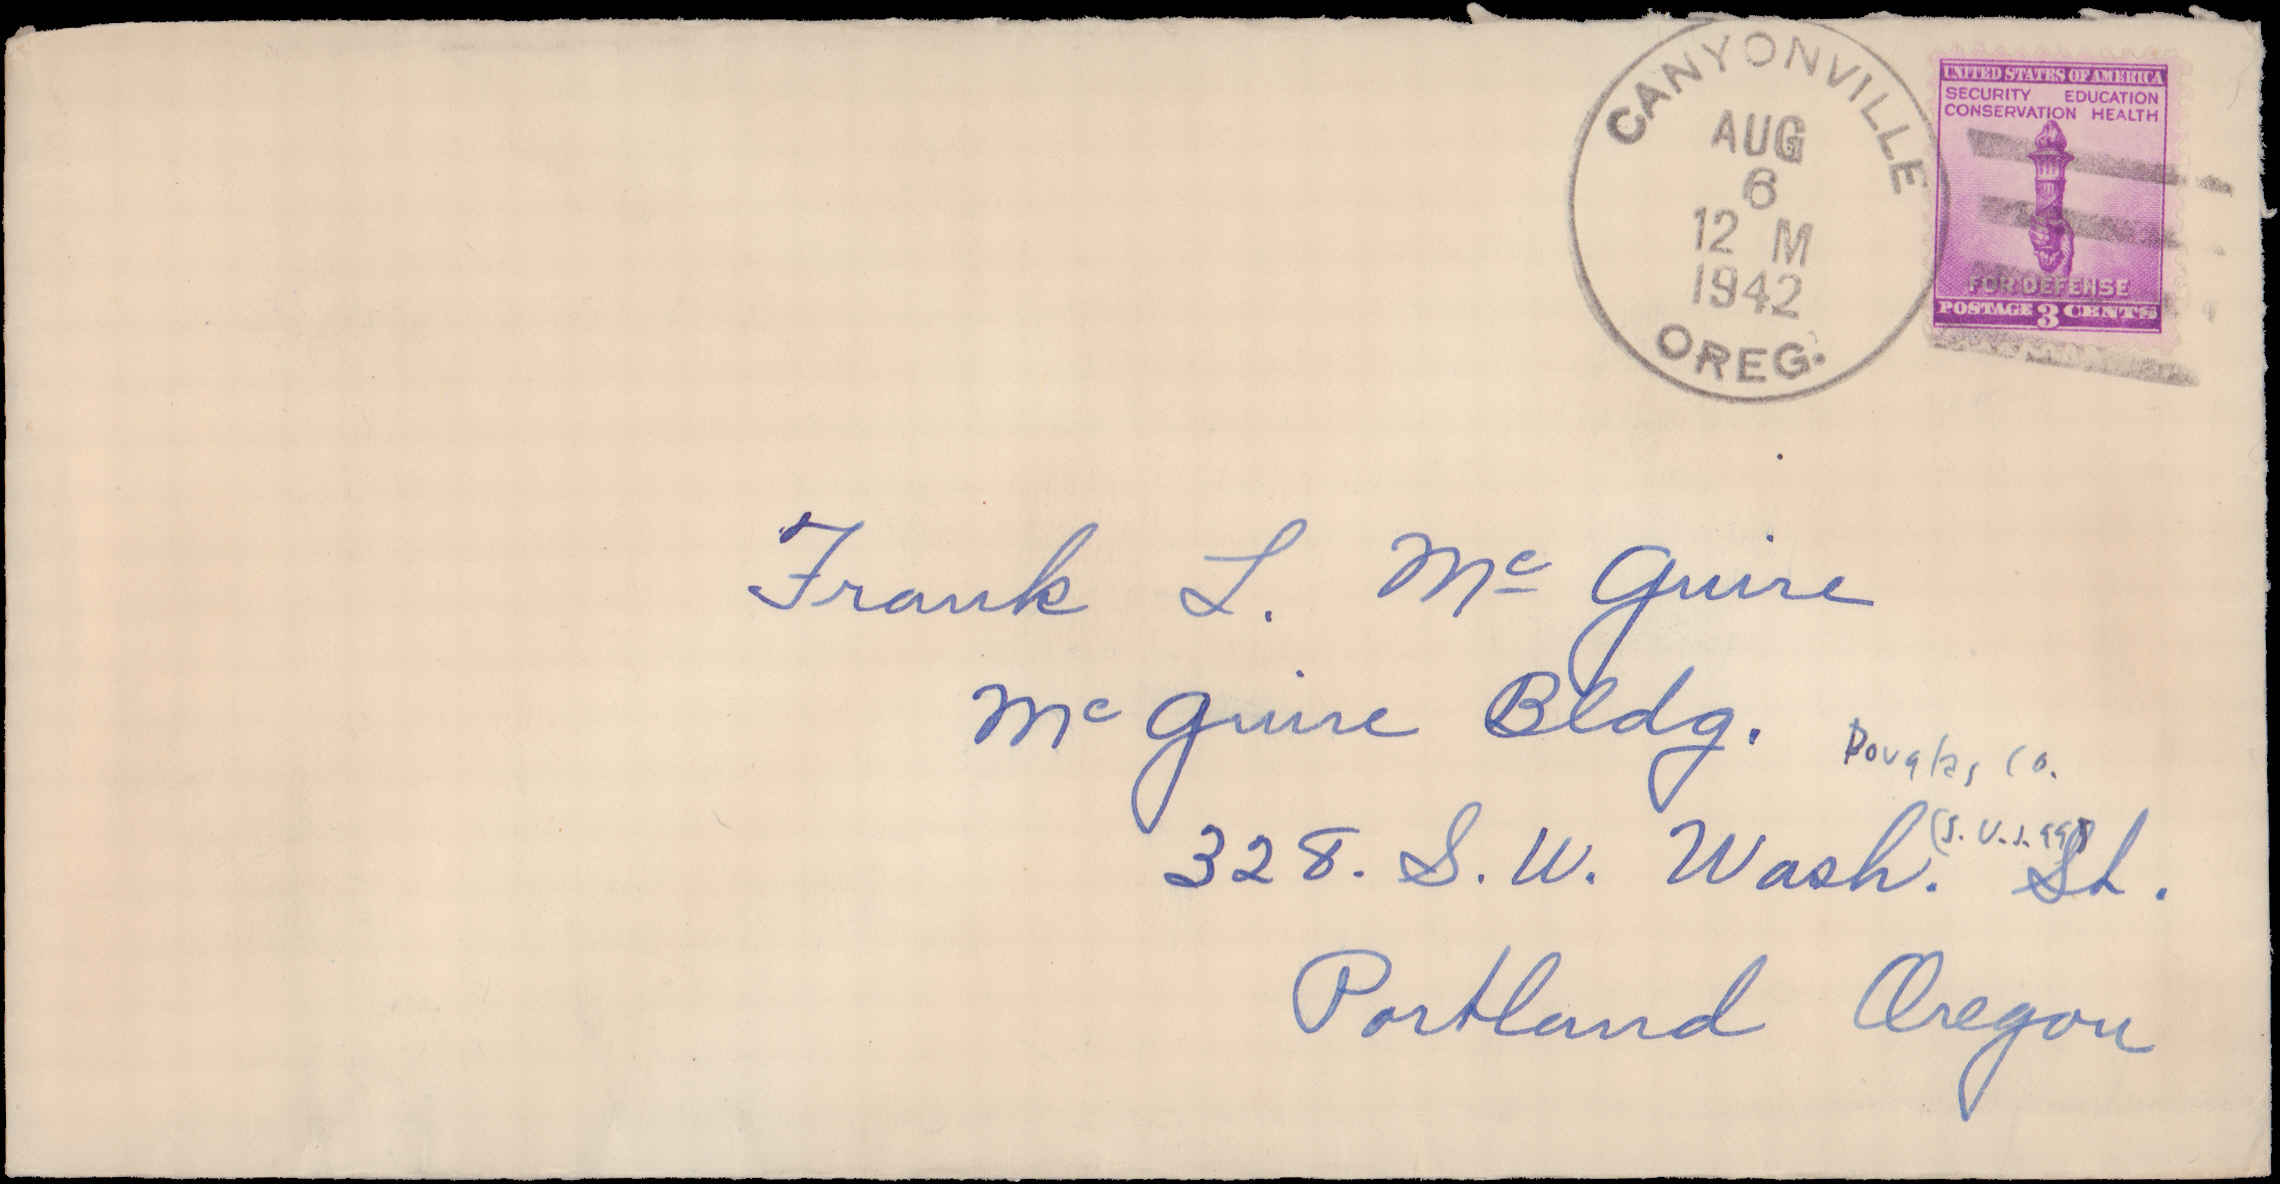 CANYONVILLE
AUG
6
12 M
1942
OREG.
UNITED STATES OF AMERICA
SECURITY EDUCATION
CONSERVATION HEALTH
FOR DEFENSE
POSTAGE 3 CENTS
Frank L. Mc Guire
Mc Guire Bldg.
Co.
328. S. W. Wash. St.
Portland Oregon